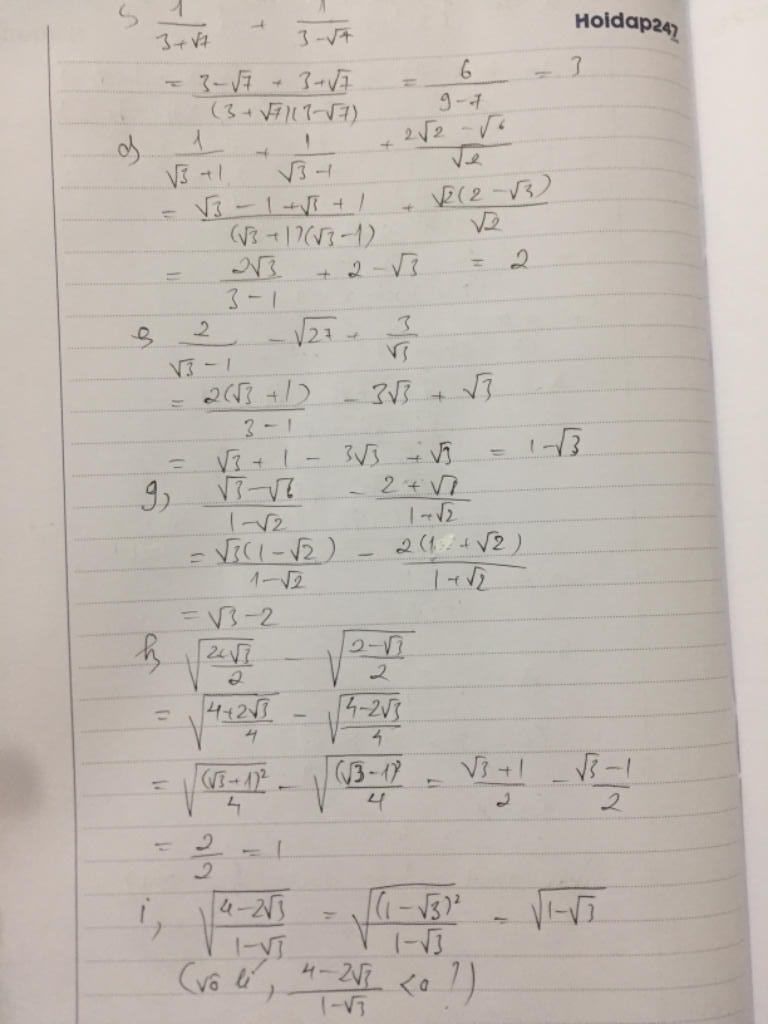 Hoidap247
c, 1/(3+√7) + 1/(3-√7)
= (3-√7 + 3+√7)/((3+√7)(3-√7)) = 6/(9-7) = 3
d, 1/(√3+1) + 1/(√3-1) + (2√2 - √6)/√2
= (√3 - 1 + √3 + 1)/((√3+1)(√3-1)) + √2(2-√3)/√2
= 2√3/(3-1) + 2 - √3 = 2
e, 2/(√3-1) - √27 + 3/√3
= 2(√3+1)/(3-1) - 3√3 + √3
= √3 + 1 - 3√3 + √3 = 1-√3
g, (√3-√6)/(1-√2) - (2+√8)/(1+√2)
= √3(1-√2)/(1-√2) - 2(1+√2)/(1+√2)
= √3-2
h, √((2+√3)/2) - √((2-√3)/2)
= √((4+2√3)/4) - √((4-2√3)/4)
= √((√3+1)²/4) - √((√3-1)²/4) = (√3+1)/2 - (√3-1)/2
= 2/2 = 1
i, √((4-2√3)/(1-√3)) = √((1-√3)²/(1-√3)) = √(1-√3)
(vô lí, (4-2√3)/(1-√3) <0 ?)